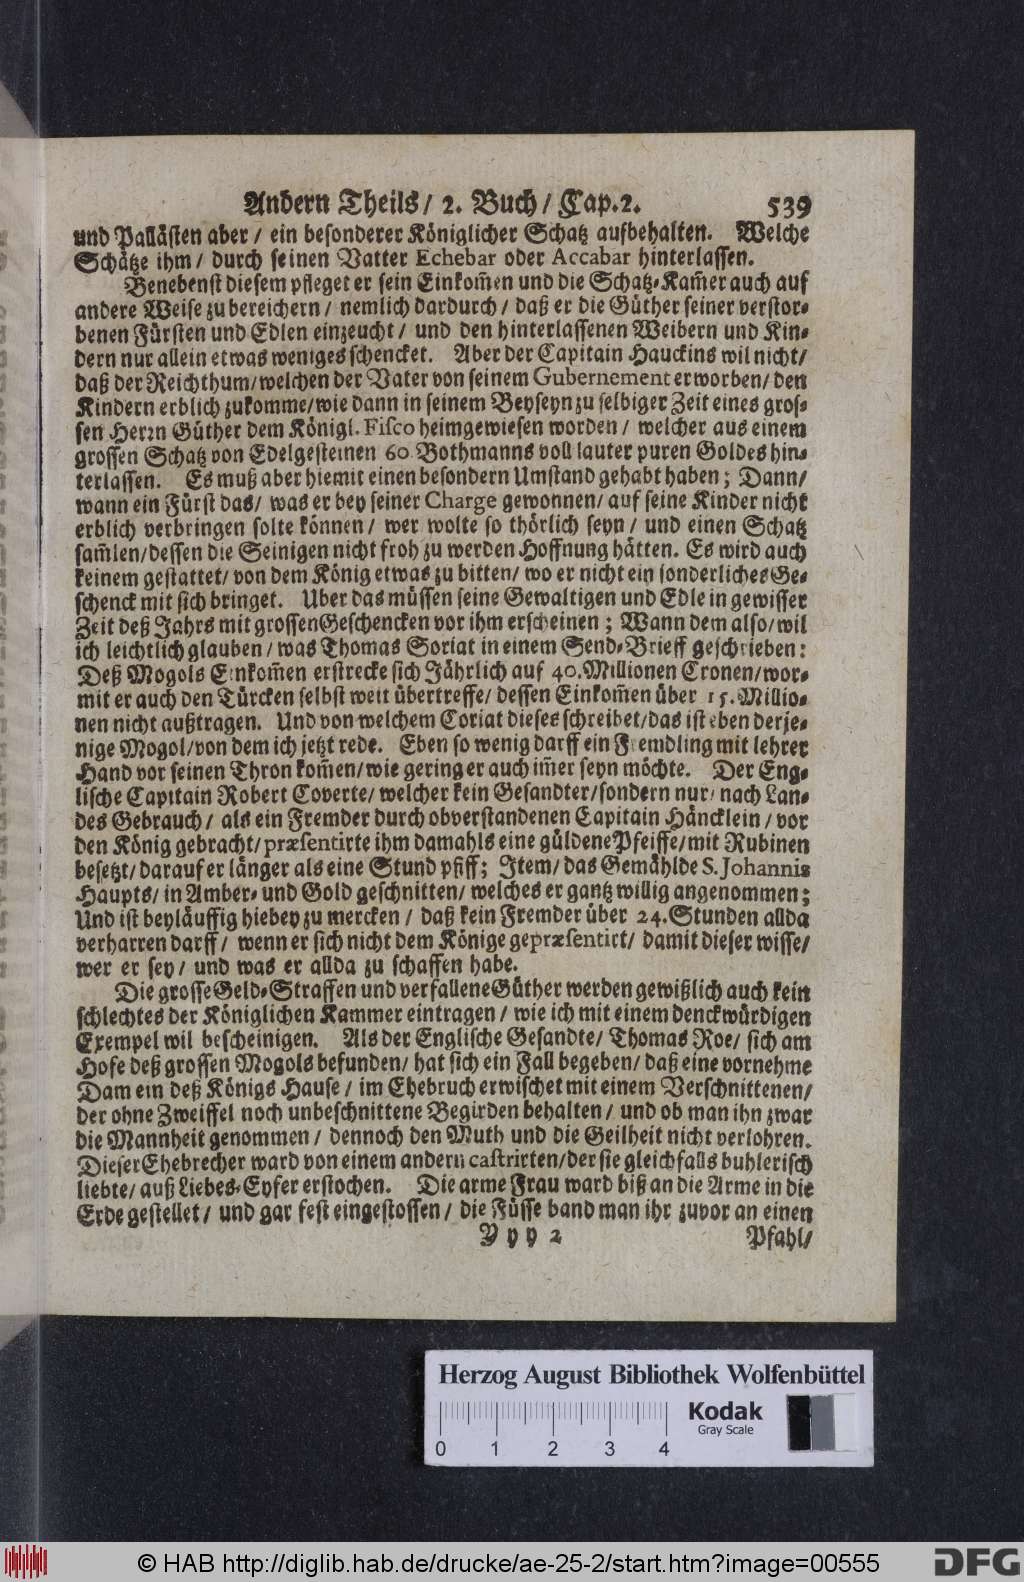 Andern Theils/ 2. Buch/ Cap. 2. 539
und Pallästen aber/ ein besonderer Königlicher Schatz aufbehalten. Welche
Schätze ihm/ durch seinen Vatter Echebar oder Accabar hinterlassen.
Benebenst diesem pfleget er sein Einkom̃en und die Schatz-Kam̃er auch auf
andere Weise zu bereichern/ nemlich dardurch/ daß er die Güther seiner verstor-
benen Fürsten und Edlen einzeucht/ und den hinterlassenen Weibern und Kin-
dern nur allein etwas weniges schencket. Aber der Capitain Hauckins wil nicht/
daß der Reichthum/ welchen der Vater von seinem Gubernement erworben/ den
Kindern erblich zukomme/ wie dann in seinem Beyseyn zu selbiger Zeit eines gros-
sen Herrn Güther dem Königl. Fisco heimgewiesen worden/ welcher aus einem
grossen Schatz von Edelgesteinen 60. Bothmanns voll lauter puren Goldes hin-
terlassen. Es muß aber hiemit einen besondern Umstand gehabt haben; Dann/
wann ein Fürst das/ was er bey seiner Charge gewonnen/ auf seine Kinder nicht
erblich verbringen solte können/ wer wolte so thörlich seyn/ und einen Schatz
sam̃len/ dessen die Seinigen nicht froh zu werden Hoffnung hätten. Es wird auch
keinem gestattet/ von dem König etwas zu bitten/ wo er nicht ein sonderliches Ge-
schenck mit sich bringet. Uber das müssen seine Gewaltigen und Edle in gewisser
Zeit deß Jahrs mit grossen Geschencken vor ihm erscheinen; Wann dem also/ wil
ich leichtlich glauben/ was Thomas Soriat in einem Send-Brieff geschrieben:
Deß Mogols Einkom̃en erstrecke sich Jährlich auf 40. Millionen Cronen/ wor-
mit er auch den Türcken selbst weit übertreffe/ dessen Einkom̃en über 15. Millio-
nen nicht außtragen. Und von welchem Coriat dieses schreibet/ das ist eben derje-
nige Mogol/ von dem ich jetzt rede. Eben so wenig darff ein Fremdling mit lehrer
Hand vor seinen Thron kom̃en/ wie gering er auch im̃er seyn möchte. Der Eng-
lische Capitain Robert Coverte/ welcher kein Gesandter/ sondern nur/ nach Lan-
des Gebrauch/ als ein Fremder durch obverstandenen Capitain Häncklein/ vor
den König gebracht/ præsentirte ihm damahls eine güldene Pfeiffe/ mit Rubinen
besetzt/ darauf er länger als eine Stund pfiff; Item/ das Gemählde S. Johannis
Haupts/ in Amber- und Gold geschnitten/ welches er gantz willig angenommen;
Und ist beyläuffig hiebey zu mercken/ daß kein Fremder über 24. Stunden allda
verharren darff/ wenn er sich nicht dem Könige gepræsentirt/ damit dieser wisse/
wer er sey/ und was er allda zu schaffen habe.
Die grosse Geld-Straffen und verfallene Güther werden gewißlich auch kein
schlechtes der Königlichen Kammer eintragen/ wie ich mit einem denckwürdigen
Exempel wil bescheinigen. Als der Englische Gesandte/ Thomas Roe/ sich am
Hofe deß grossen Mogols befunden/ hat sich ein Fall begeben/ daß eine vornehme
Dam ein deß Königs Hause/ im Ehebruch erwischet mit einem Verschnittenen/
der ohne Zweiffel noch unbeschnittene Begirden behalten/ und ob man ihn zwar
die Mannheit genommen/ dennoch den Muth und die Geilheit nicht verlohren.
Dieser Ehebrecher ward von einem andern castrirten/ der sie gleichfalls buhlerisch
liebte/ auß Liebes-Eyfer erstochen. Die arme Frau ward biß an die Arme in die
Erde gestellet/ und gar fest eingestossen/ die Füsse band man ihr zuvor an einen
Y y y 2 Pfahl/
Herzog August Bibliothek Wolfenbüttel
Kodak
Gray Scale
0 1 2 3 4
© HAB http://diglib.hab.de/drucke/ae-25-2/start.htm?image=00555
DFG